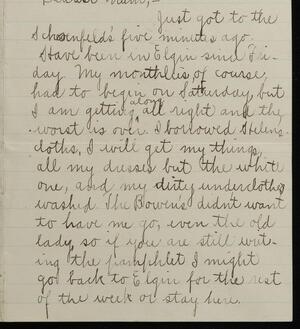 Dearest Mam,-
Just got to the
Schoenfields five minutes ago.
Have been in Elgin since Fri-
day. My monthlies of course,
had to begin on Saturday, but
I am getting along all right and the
worst is over. I borrowed Helens
cloths, I will get my things,
all my dresses but the white
one, and my dirty underclothes
washed. The Bowens didn't want
to have me go, even the old
lady, so if you are still writ-
ing the pamphlet I might
go back to Elgin for the rest
of the week or stay here.